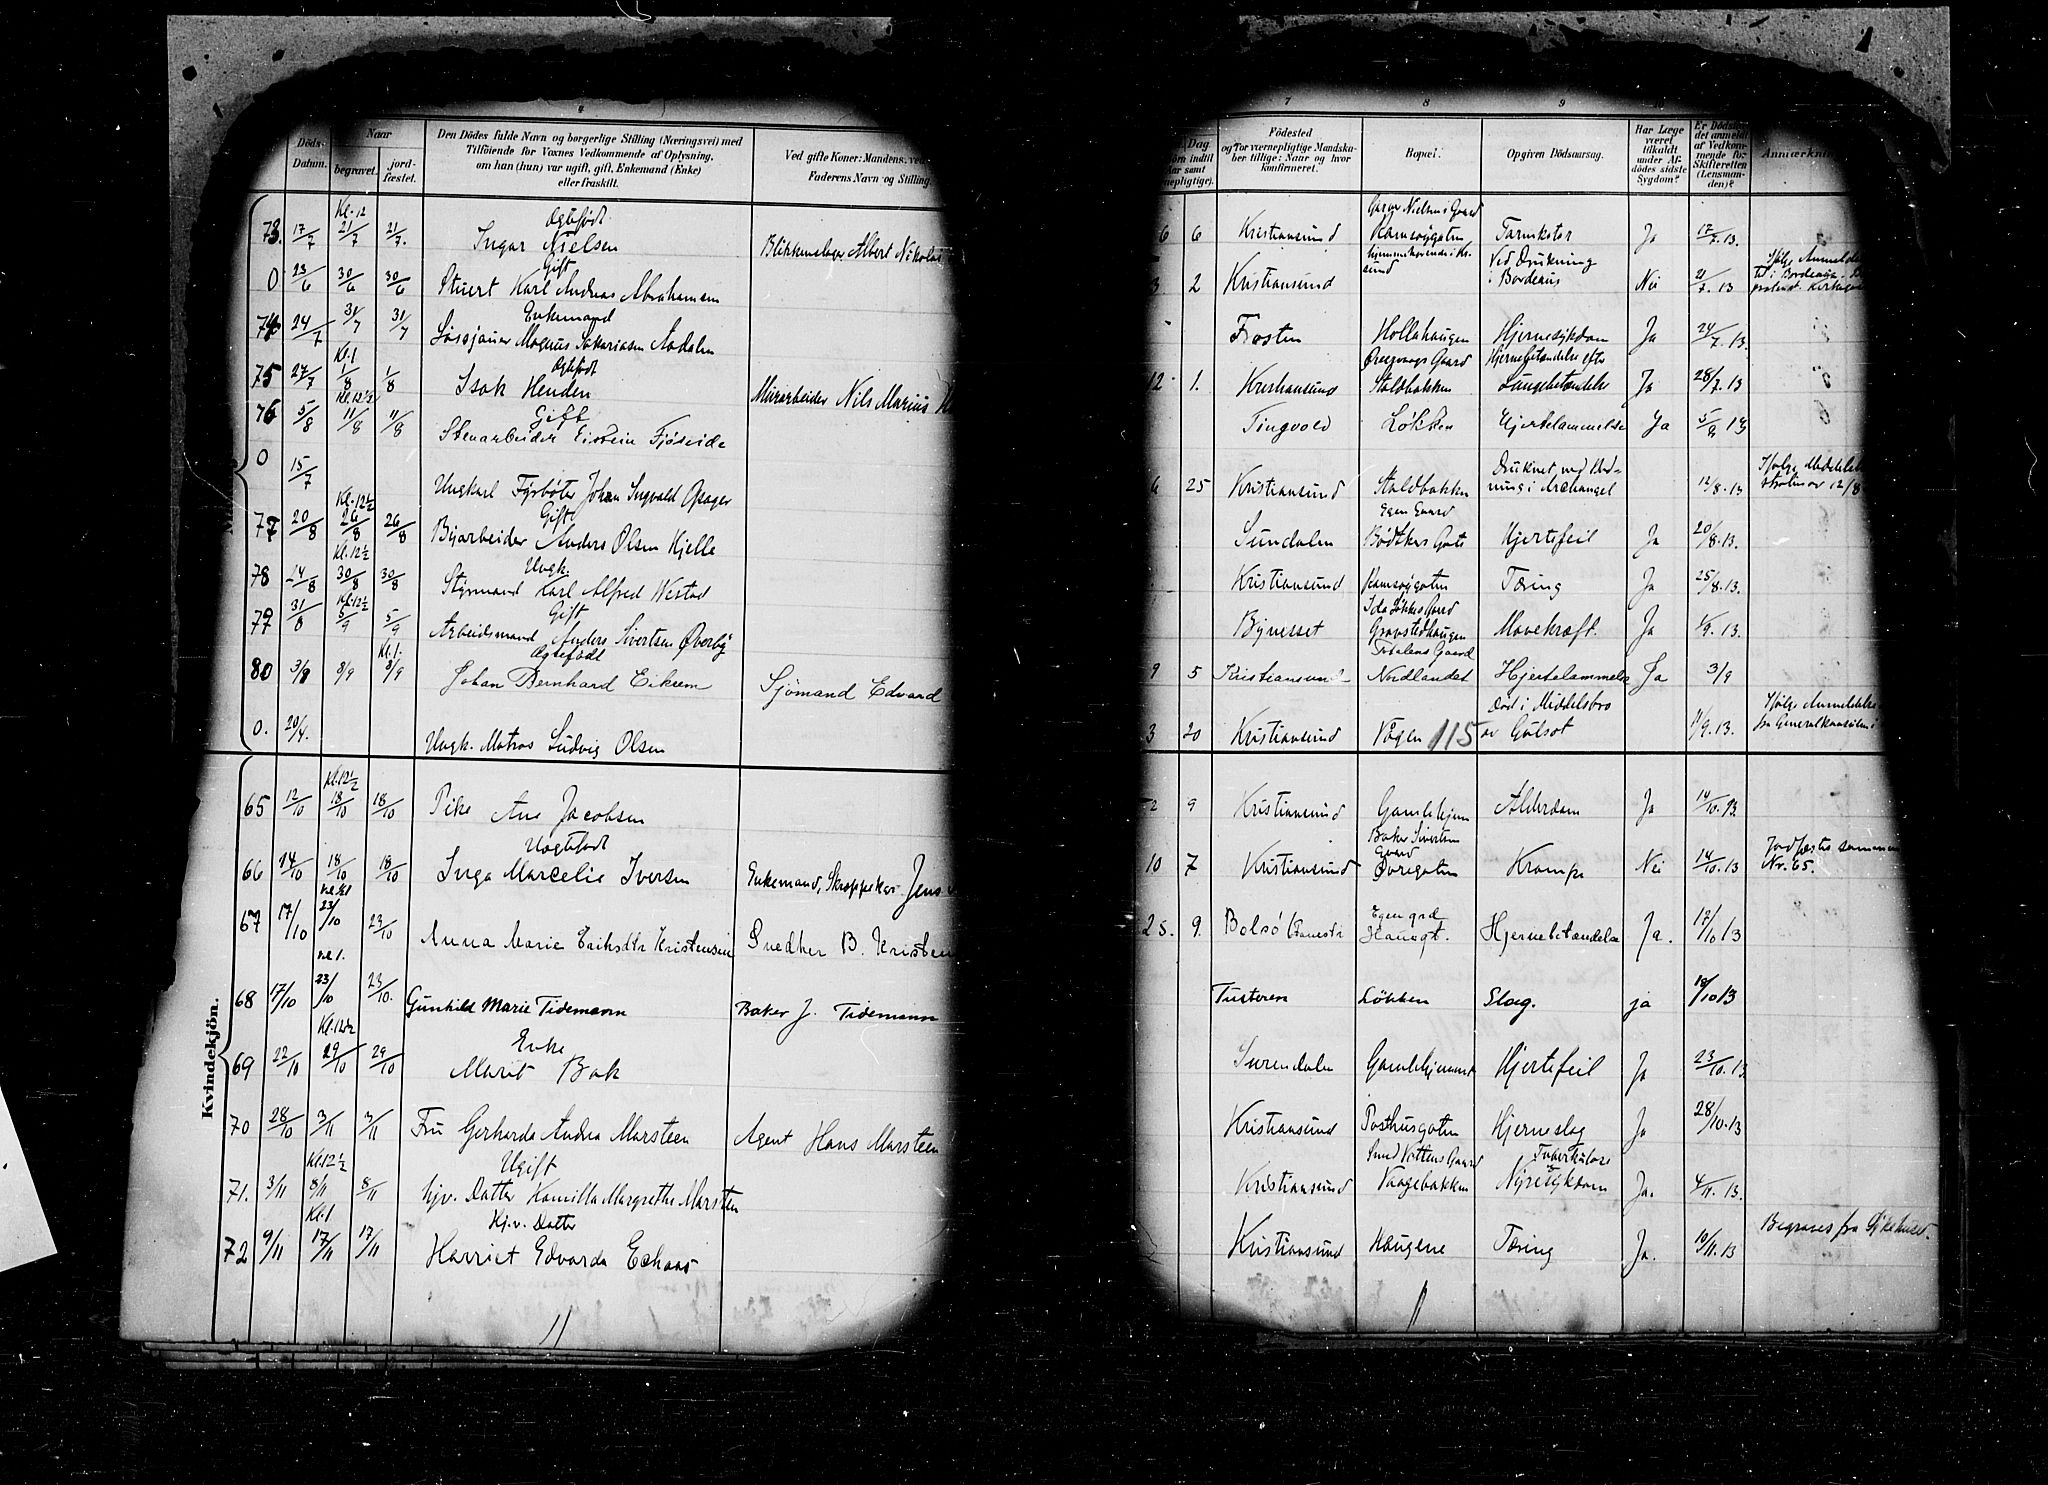 4
Döds-
Datum.
Naar
begravet.
jord-
fæstet.
Den Dödes fulde Navn og borgerlige Stilling (Næringsvei) med
Tilföiende for Voxnes Vedkommende af Oplysning,
om han (hun) var ugift, gift, Enkemand (Enke)
eller fraskilt.
Ved gifte Koner: Mandens, ved
Faderens Navn og Stilling.
Kl. 12
Ogtefødt
73. 17/7 21/7 21/7. Ingar Nielsen Blikkenslager Albert Nikolai
Gift
0 23/6 30/6 30/6 Stuert Karl Andreas Abrahamsen
Enkemand
74 24/7 31/7 31/7 Magnus Sakariasen Aadalen
Kl. 1
Ogtefødt
75 27/7 1/8 1/8 Isak Henden Murarbeider Nils Marius
Kl. 12½
Gift
76 5/8 11/8 11/8 Stenarbeider Eistein Fjöseide
0 15/7
Ungkarl Fyrbøter Johan Ingvald Opsager
Kl. 12½
Gift
77 20/8 26/8 26/8 Byarbeider Anders Olsen Kjelle
Kl. 12½
Ungk.
78 14/8 30/8 30/8 Styrmand Karl Alfred Westad
Kl. 12½
Gift
79 31/8 5/9 5/9 Arbeidsmand Anders Sivertsen Øverby
Kl. 1.
Ogtefödt
80 3/8 8/9 8/9 Johan Bernhard Eiksem Sjömand Edvard
0. 20/4. Ungk. Matros Ludvig Olsen
Kvindekjön.
Kl. 12½
65 12/10 18/10 18/10 Pike Ane Jacobsen
Uogtefödt
66 14/10 18/10 18/10 Inga Marcelie Iversen Enkemand, Jens
67 17/10 23/10 23/10 Anna Marie Eriksdtr Kristensen Snedker B. Kristen
kl 1.
68 17/10 23/10 23/10. Gunhild Marie Tidemann Baker J. Tidemann
Kl. 12½
Enke
69 22/10 29/10 29/10 Marit Bak
70 28/10 3/11 3/11 Fru Gerharda Andrea Marsteen Agent Hans Marsteen
Kl. 12½
Ugift
71. 3/11 8/11 8/11 hjv. Datter Kamilla Margrethe Marsteen
Kl. 1
Hj.v. Datter
72 9/11 17/11 17/11 Harriet Edvarda Echaas
11
7
8
9
10
Dag
Födested
og for værnepligtige Mandska-
ber tillige: Naar og hvor
konfirmeret.
Bopæl.
Opgiven Dödsaarsag.
Har Læge
været
tilkaldt
under Af-
dödes sidste
Sygdom?
Er Dödsfal-
det anmeldt
af Vedkom-
mende for
Skifteretten
(Lensman-
den)?
Anmærkning
Nielsens Gaard
6 6 Kristiansund Ramsøygaten Tarmkatar Ja 17/7.13.
hjemmehørende i Kr.
sund
Ved Drukning
i Bordeaux
3 2 Kristiansund Nei 21/7.13
Ifølge Anmeldel
Frosten Hollahaugen Hjernesykdom Ja 24/7.13.
Gaard Hjernebetændelse efter
12 1. Kristiansund Staldbakken Lungebetændelse Ja 28/7.13
Tingvold Løkken Hjertelammelse Ja 5/8 13
Druknet ved
6 25 Kristiansund Staldbakken i Archangel 12/8.13
Ifølge Meddelelse
12/8
Egen Gaard
Sundalen Bødtkers Gate Hjertefeil Ja 20/8.13.
Kristiansund Ramsøygaten Tæring Ja 25/8.13.
Ida Løkkes Gaard
Bynesset Gravstedhaugen Mavekræft. Ja 1/9.13.
Gaard
9 5 Kristiansund Nordlandet Hjertelammelse Ja 3/9
Död i Middelsbro
3 20 Kristiansund Vågen 115 av Gulsot 11/9.13.
Ifølge Anmeldelse
fra Generalkonsulen i
9 Kristiansund Gamlehjem Alderdom Ja 14/10.13
Baker Sivertsens
Gaard
10 7 Kristiansund Øvregaten Krampe Nei 14/10.13
Jordfæstes sammen m
Nr. 65.
Egen grd
25. 9. Bolsö Haugt. Hjernebetændelse Ja. 17/10 13
Tusteren Løkken Slag. ja 18/10 13
Surendalen Gamlehjemmet Hjertefeil Ja 23/10.13.
Kristiansund Posthusgaten Hjerneslag Ja 28/10.13
Gaard Tuberkuløse
Kristiansund Vaagebakken Nyresykdom Ja. 4/11.13.
Kristiansund Haugene Tæring Ja. 10/11.13
Begraves fra Sykehuset.